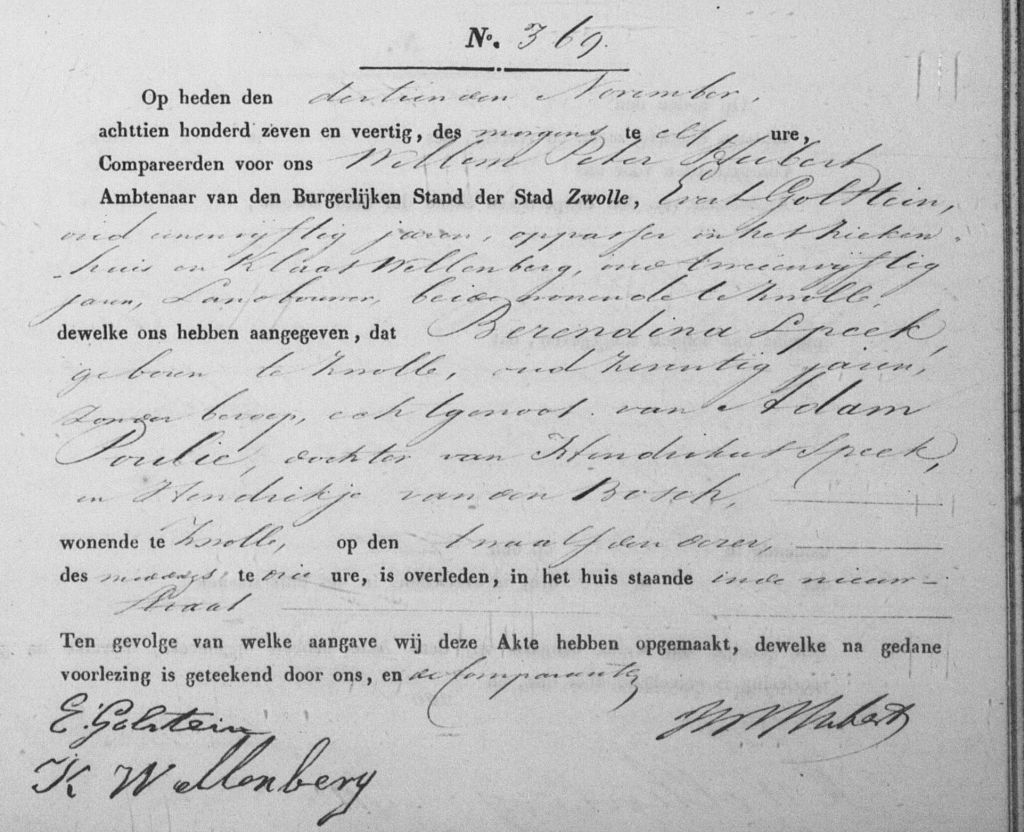 No. 369.
Op heden den dertienden November,
achttien honderd zeven en veertig, des morgens te elf ure,
Compareerden voor ons Willem Peter Hubert
Ambtenaar van den Burgerlijken Stand der Stad Zwolle, Evert Golstein,
oud eenenvyftig jaren, oppasser in het zieken-
huis en Klaas Wellenberg, oud tweeenvyftig
jaren, Landbouwer, beide wonende te Zwolle,
dewelke ons hebben aangegeven, dat Berendina Speek,
geboren te Zwolle, oud zeventig jaren,
zonder beroep, echtgenoot van Adam
Poulie, dochter van Hendrikus Speek,
en Hendrikje van den Bosch,
wonende te Zwolle, op den twaalfden dezer,
des middags te drie ure, is overleden, in het huis staande in de nieuw-
straat
Ten gevolge van welke aangave wij deze Akte hebben opgemaakt, dewelke na gedane
voorlezing is geteekend door ons, en de Comparanten
E. Golstein
K Wellenberg